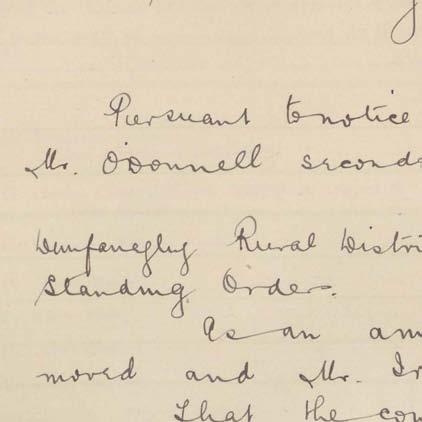 Pursuant to notice
Mr. O'Donnell seconde
Dunfanaghy Rural Distri
Standing Orders.
As an am
moved and Mr. Ir
That the con